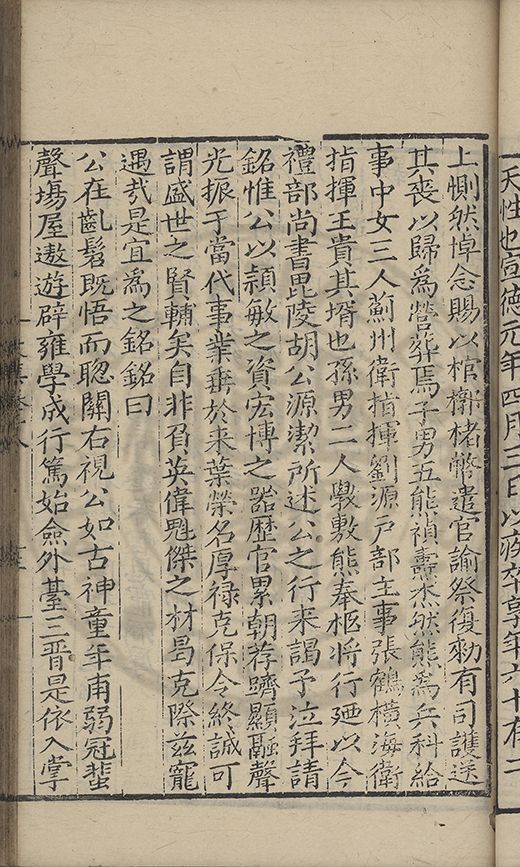 天性也宣德元年四月三日以疾卒享年六十有二
上惻然悼念賜以棺槨楮幣遣官諭祭復勑有司護送
其喪以歸爲營葬焉子男五能禎燾杰然熊爲兵科給
事中女三人薊州衛指揮劉源戸部主事張鶴橫海衛
指揮王貴其壻也孫男二人斆敷熊奉柩將行廼以今
禮部尚書毘陵胡公源潔所述公之行来謁予泣拜請
銘惟公以頴敏之資宏博之器歷官累朝荐躋顯融聲
光振于當代事業垂於来葉榮名厚禄克保令終誠可
謂盛世之賢輔矣自非負英偉魁傑之材曷克際兹寵
遇㢤是宜爲之銘銘曰
公在齓髫既悟而聦關右視公如古神童年甫弱冠蜚
聲塲屋遨遊辟雍學成行篤始僉外臺三晋是依入掌